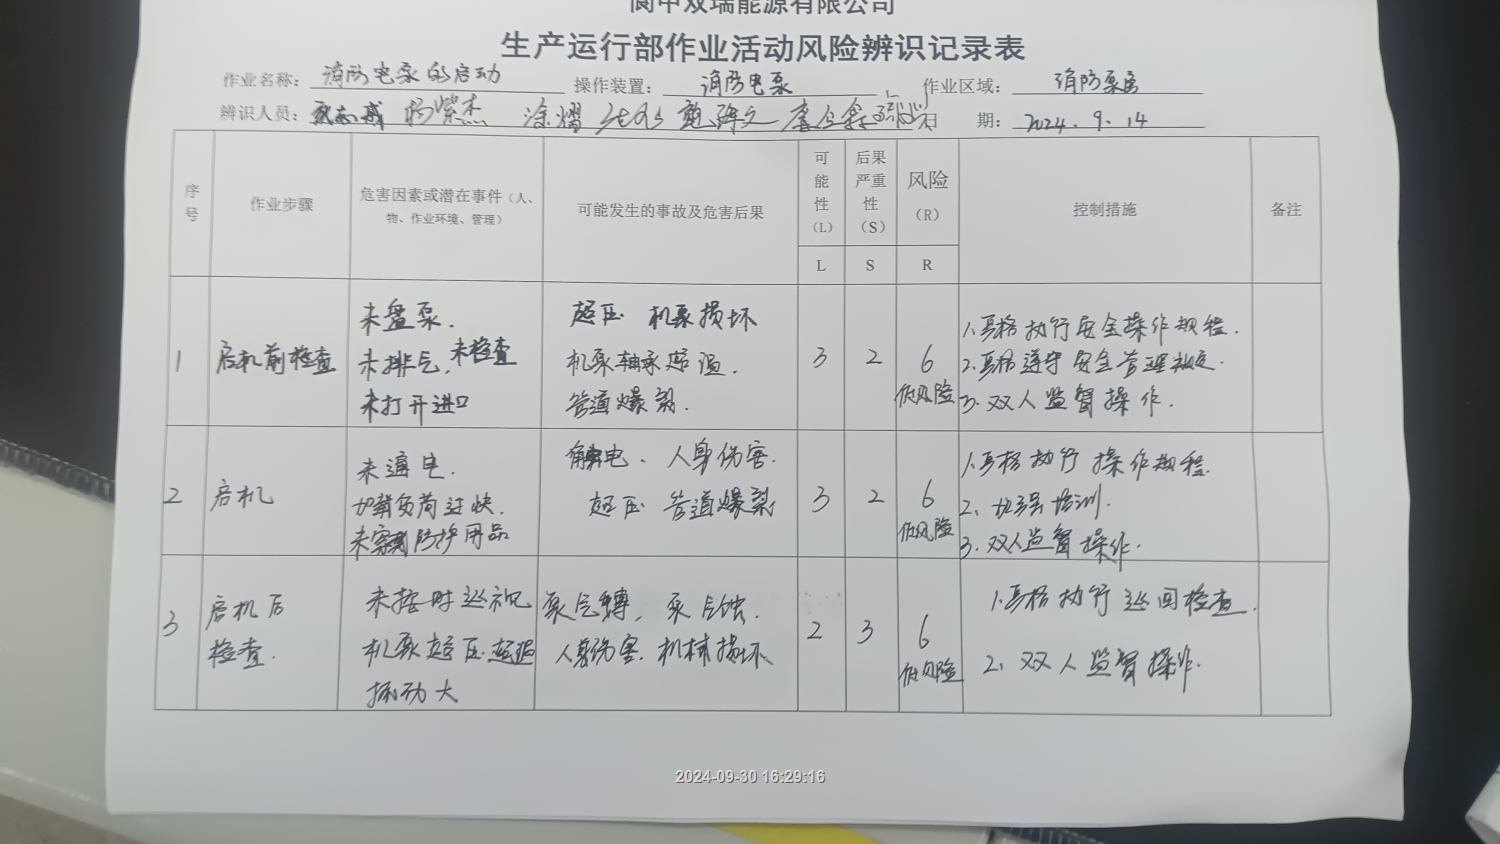 阆中双瑞能源有限公司
生产运行部作业活动风险辨识记录表
作业名称: 消防电泵的启动 操作装置: 消防电泵 作业区域: 消防泵房
辨识人员: 杨紫杰 涂熠 日 期: 2024.9.14
序号 作业步骤 危害因素或潜在事件（人、物、作业环境、管理） 可能发生的事故及危害后果 可能性（L） 后果严重性（S） 风险（R） 控制措施 备注
L S R
1 启机前检查 未盘泵. 未排气, 未检查 未打开进口 超压 机泵损坏 机泵轴承超温. 管道爆裂. 3 2 6 低风险 1.严格执行安全操作规程. 2.严格遵守安全管理规定. 3.双人监督操作.
2 启机 未通电. 加载负荷过快. 未穿戴防护用品 触电、人身伤害. 超压 管道爆裂 3 2 6 低风险 1.严格执行操作规程. 2、加强培训. 3.双人监督操作.
3 启机后检查. 未按时巡视 机泵超压.超温 振动大 泵气缚, 泵气蚀. 人身伤害.机械损坏 2 3 6 低风险 1.严格执行巡回检查. 2、双人监督操作.
2024-09-30 16:29:16